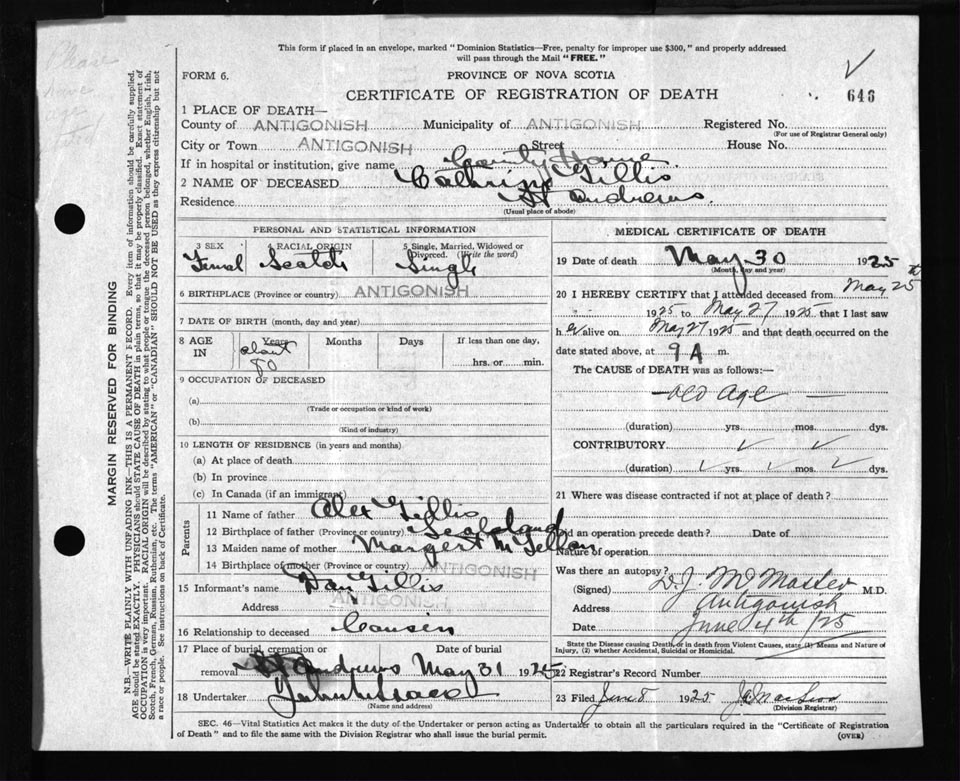 This form if placed in an envelope, marked "Dominion Statistics—Free, penalty for improper use $300," and properly addressed
will pass through the Mail "FREE."
FORM 6.
PROVINCE OF NOVA SCOTIA
CERTIFICATE OF REGISTRATION OF DEATH
646
1 PLACE OF DEATH—
County of ANTIGONISH Municipality of ANTIGONISH Registered No.
(For use of Registrar General only)
City or Town ANTIGONISH Street House No.
If in hospital or institution, give name County Home
2 NAME OF DECEASED Gillis
Residence St Andrews.
(Usual place of abode)
PERSONAL AND STATISTICAL INFORMATION
3 SEX 4 RACIAL ORIGIN 5 Single, Married, Widowed or
Divorced. (Write the word)
Femal Scotch Single
6 BIRTHPLACE (Province or country) ANTIGONISH
7 DATE OF BIRTH (month, day and year)
8 AGE IN Years Months Days If less than one day,
about 80 hrs. or min.
9 OCCUPATION OF DECEASED
(a)
(Trade or occupation or kind of work)
(b)
(Kind of industry)
10 LENGTH OF RESIDENCE (in years and months)
(a) At place of death
(b) In province
(c) In Canada (if an immigrant)
Parents
11 Name of father Alex Gillis
12 Birthplace of father (Province or country) Scotland
13 Maiden name of mother Margert
14 Birthplace of mother (Province or country) ANTIGONISH
15 Informant's name Dan Gillis
Address ANTIGONISH
16 Relationship to deceased Cousen
17 Place of burial, cremation or Date of burial
removal St Andrews May 31 1925
18 Undertaker
(Name and address)
MEDICAL CERTIFICATE OF DEATH
19 Date of death May 30 1925
(Month, day and year)
20 I HEREBY CERTIFY that I attended deceased from May 25th
1925 to May 27 1925 that I last saw
h er alive on May 27 1925 and that death occurred on the
date stated above, at 9 A m.
The CAUSE of DEATH was as follows:—
Old Age
(duration) yrs. mos. dys.
CONTRIBUTORY
(duration) yrs mos. dys.
21 Where was disease contracted if not at place of death?
Did an operation precede death? Date of
Nature of operation
Was there an autopsy?
(Signed) M.D.
Address Antigonish
Date June 4th /25
State the Disease causing Death, or in death from Violent Causes, state (1) Means and Nature of
Injury, (2) whether Accidental, Suicidal or Homicidal.
22 Registrar's Record Number
23 Filed June 8 1925
(Division Registrar)
SEC. 46—Vital Statistics Act makes it the duty of the Undertaker or person acting as Undertaker to obtain all the particulars required in the "Certificate of Registration
of Death" and to file the same with the Division Registrar who shall issue the burial permit.
(OVER)
MARGIN RESERVED FOR BINDING
N.B.—WRITE PLAINLY WITH UNFADING INK—THIS IS A PERMANENT RECORD. Every item of information should be carefully supplied.
AGE should be stated EXACTLY. PHYSICIANS should STATE CAUSE OF DEATH in plain terms, so that it may be properly classified. Exact statement of
OCCUPATION is very important. RACIAL ORIGIN will be described by stating to what people or tongue the deceased person belonged, whether English, Irish,
Scotch, French, German, Russian, Ruthenian, etc. The terms "AMERICAN" or "CANADIAN" SHOULD NOT BE USED as they express citizenship but not
a race or people. See instructions on back of Certificate.
Please